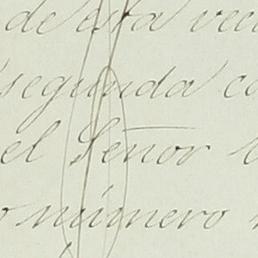 de esta
segunda
el Señor
número